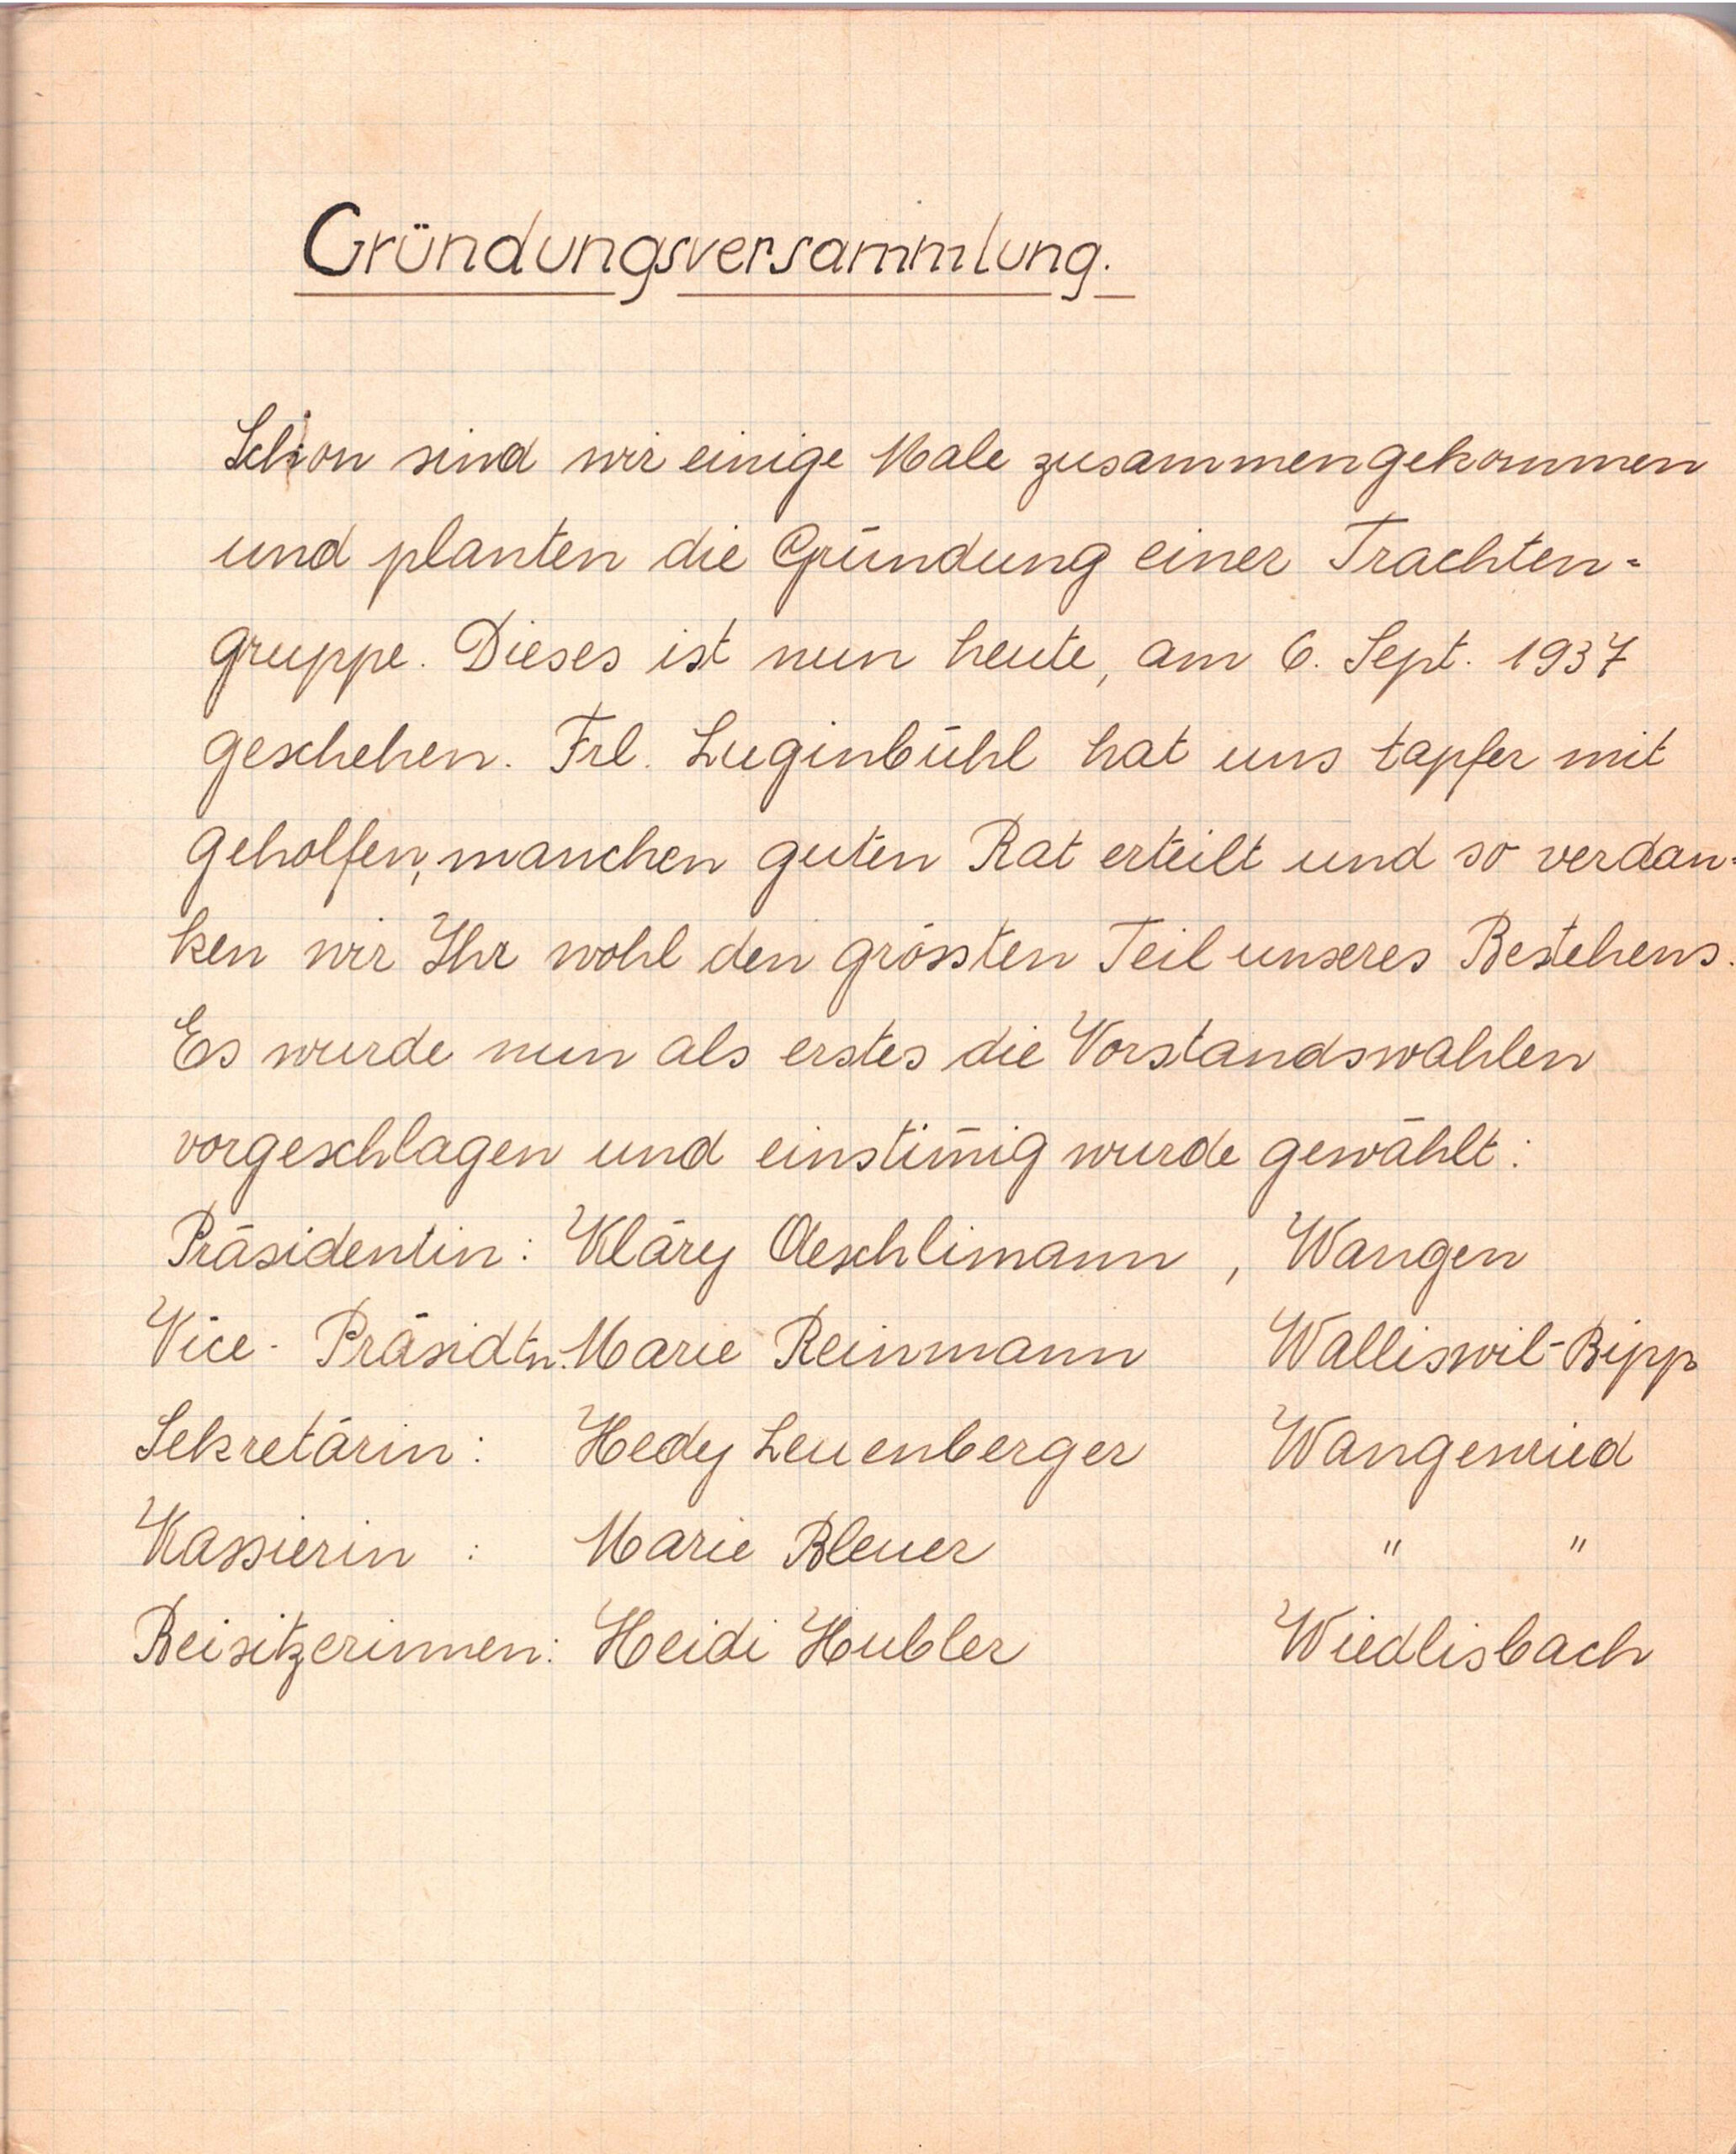 Gründungsversammlung.
Schon sind wir einige Male zusammengekommen
und planten die Gründung einer Trachten=
gruppe. Dieses ist nun heute, am 6. Sept. 1937
geschehen. Frl. Luginbühl hat uns tapfer mit
geholfen, manchen guten Rat erteilt und so verdan=
ken wir Ihr wohl den grössten Teil unseres Bestehens.
Es wurde nun als erstes die Vorstandswahlen
vorgeschlagen und einstim̄ig wurde gewählt:
Präsidentin: Kläry Aeschlimann, Wangen
Vice-Präsidtn. Marie Reinmann Walliswil-Bipp
Sekretärin: Hedy Leuenberger Wangenried
Kassierin : Marie Bleuer " "
Beisitzerinnen: Heidi Hubler Wiedlisbach